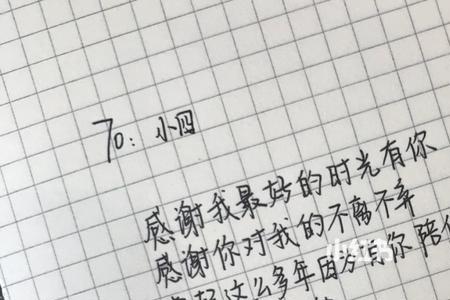 To: 小四
感谢我最好的时光有你
感谢你对我的不离不弃
这么多年因为有你陪
小红书